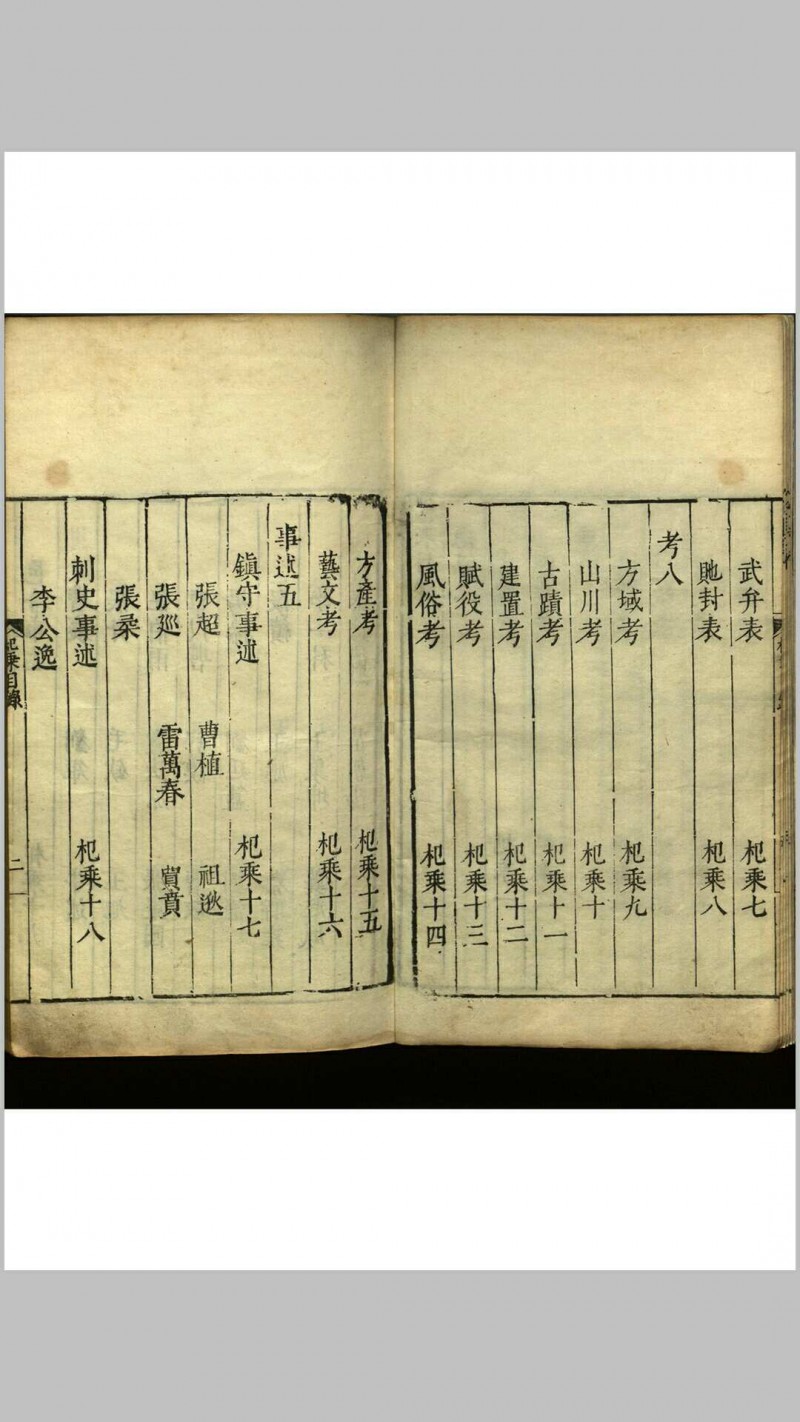 武弁表 杞乘七
貤封表 杞乘八
考八
方域考 杞乘九
山川考 杞乘十
古蹟考 杞乘十一
建置考 杞乘十二
賦役考 杞乘十三
風俗考 杞乘十四
方產考 杞乘十五
藝文考 杞乘十六
事述五
鎮守事述 杞乘十七
張超 曹植 祖逖
張廵 雷萬春 賈賁
張柔
刺史事述 杞乘十八
李公逸
杞乘目錄 二